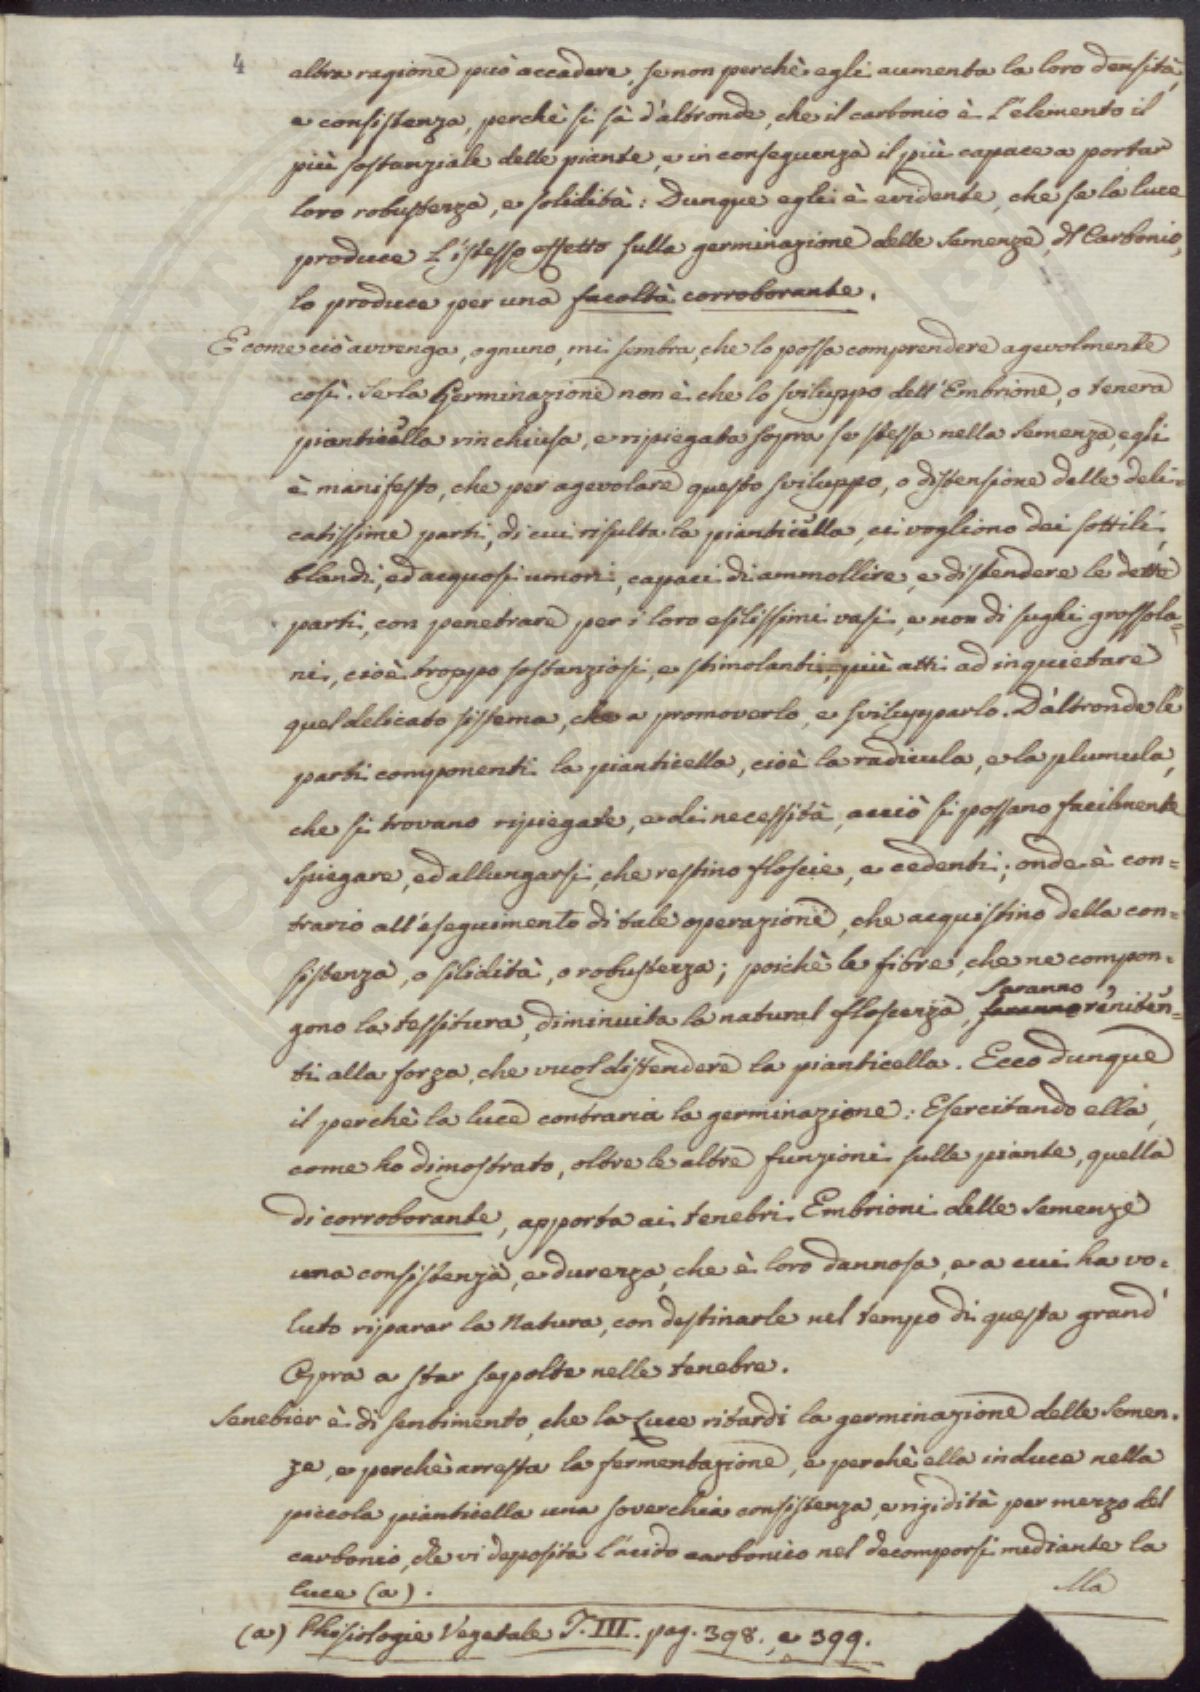 4
altra ragione può accadere, se non perchè egli aumenta la loro densità,
e consistenza, perchè si sà d'altronde, che il carbonio è l'elemento il
più sostanziale delle piante, e in conseguenza il più capace a portar
loro robustezza, e solidità: Dunque egli è evidente, che se la luce
produce l'istesso effetto sulla germinazione delle semenze, del Carbonio,
lo produce per una facoltà corroborante.
E come ciò avvenga, ognuno, mi sembra, che lo possa comprendere agevolmente
così. Se la Germinazione non è che lo sviluppo dell'Embrione, o tenera
pianticella rinchiusa, e ripiegata sopra se stessa nella semenza, egli
è manifesto, che per agevolare questo sviluppo, o distensione delle deli=
catissime parti, di cui risulta la pianticella, ci vogliono dei sottili,
blandi, ed acquosi umori, capaci di ammollire, e distendere le dette
parti, con penetrare per i loro esilissimi vasi, e non di sughi grossola=
ni, cioè troppo sostanziosi, e stimolanti, più atti ad inquietare
quel delicato sistema, che a promoverlo, e svilupparlo. D'altronde le
parti componenti la pianticella, cioè la radicula, e la plumula,
che si trovano ripiegate, è di necessità, acciò si possano facilmente
spiegare, ed allungarsi, che restino floscie, e cedenti; onde è con=
trario all'eseguimento di tale operazione, che acquistino della con=
sistenza, o silidità, o robustezza; poichè le fibre, che ne compon=
saranno
gono la tessitura, diminuita la natural floscezza, reniten=
ti alla forza, che vuol distendere la pianticella. Ecco dunque
il perchè la luce contraria la germinazione: Esercitando ella,
come ho dimostrato, oltre le altre funzioni sulle piante, quella
di corroborante, apporta ai tenebri Embrioni delle semenze
una consistenza, e durezza, che è loro dannosa, e a cui ha vo=
luto riparar la Natura, con destinarle nel tempo di questa grand'
Opra a star sepolte nelle tenebre.
Senebier è di sentimento, che la Luce ritardi la germinazione delle semen=
ze, e perchè arresta la fermentazione, e perchè ella induce nella
piccola pianticella una soverchia consistenza, e rigidità per mezzo del
carbonio, che vi deposita l'acido carbonico nel decomporsi mediante la
luce (a).
Ma
(a) Phisiologie Vegetale T. III. pag. 398. e 399.